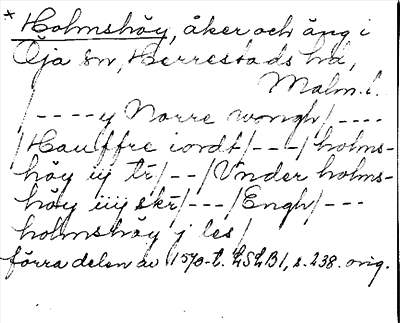 * Holmshöy, åker och äng i
Öja sn, Herrestads hd,
Malm. l.
/ - - - - y Norre wongh / - - - -
/ Hauffre iordt / - - - / holms-
höy iij tr / - - / Vnder holms-
höy iiij skr / - - - / Engh / - - -
holmshöy j les /
förra delen av 1570-t. LSLB1, s. 238. orig.